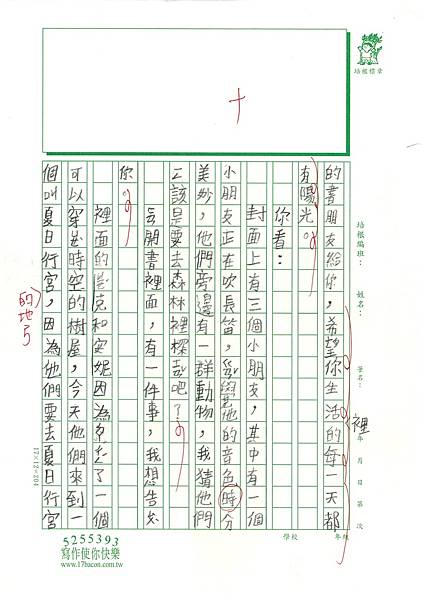 培根標章
培根編班：
姓名：
筆名：
年 月 日 第 次
學校
年級
的書朋友給你，希望你生活的每一天都
裡
有陽光。
你看：
封面上有三個小朋友，其中有一個
小朋友正在吹長笛，感覺他的音色時分
美妙，他們旁邊有一群動物，我猜他們
應該是要去森林裡探險吧？
翻開書裡面，有一件事，我想告訴
你。
裡面的傑克和安妮因為得到了一個
可以穿越時空的樹屋，今天他們來到一
個叫夏日行宮，因為他們要去夏日行宮
的地方
17×12=204
5255393
寫作使你快樂
www.17bacon.com.tw